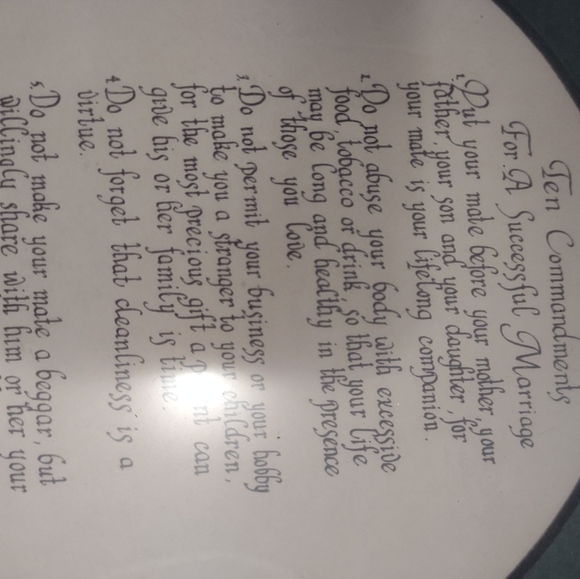 Ten Commandments
For A Successful Marriage
1. Put your mate before your mother, your
father, your son and your daughter, for
your mate is your lifelong companion.
2. Do not abuse your body with excessive
food, tobacco or drink, so that your life
may be long and healthy in the presence
of those you love.
3. Do not permit your business or your hobby
to make you a stranger to your children,
for the most precious gift a can
give his or her family is time.
4. Do not forget that cleanliness is a
virtue.
5. Do not make your mate a beggar, but
willingly share with him or her your